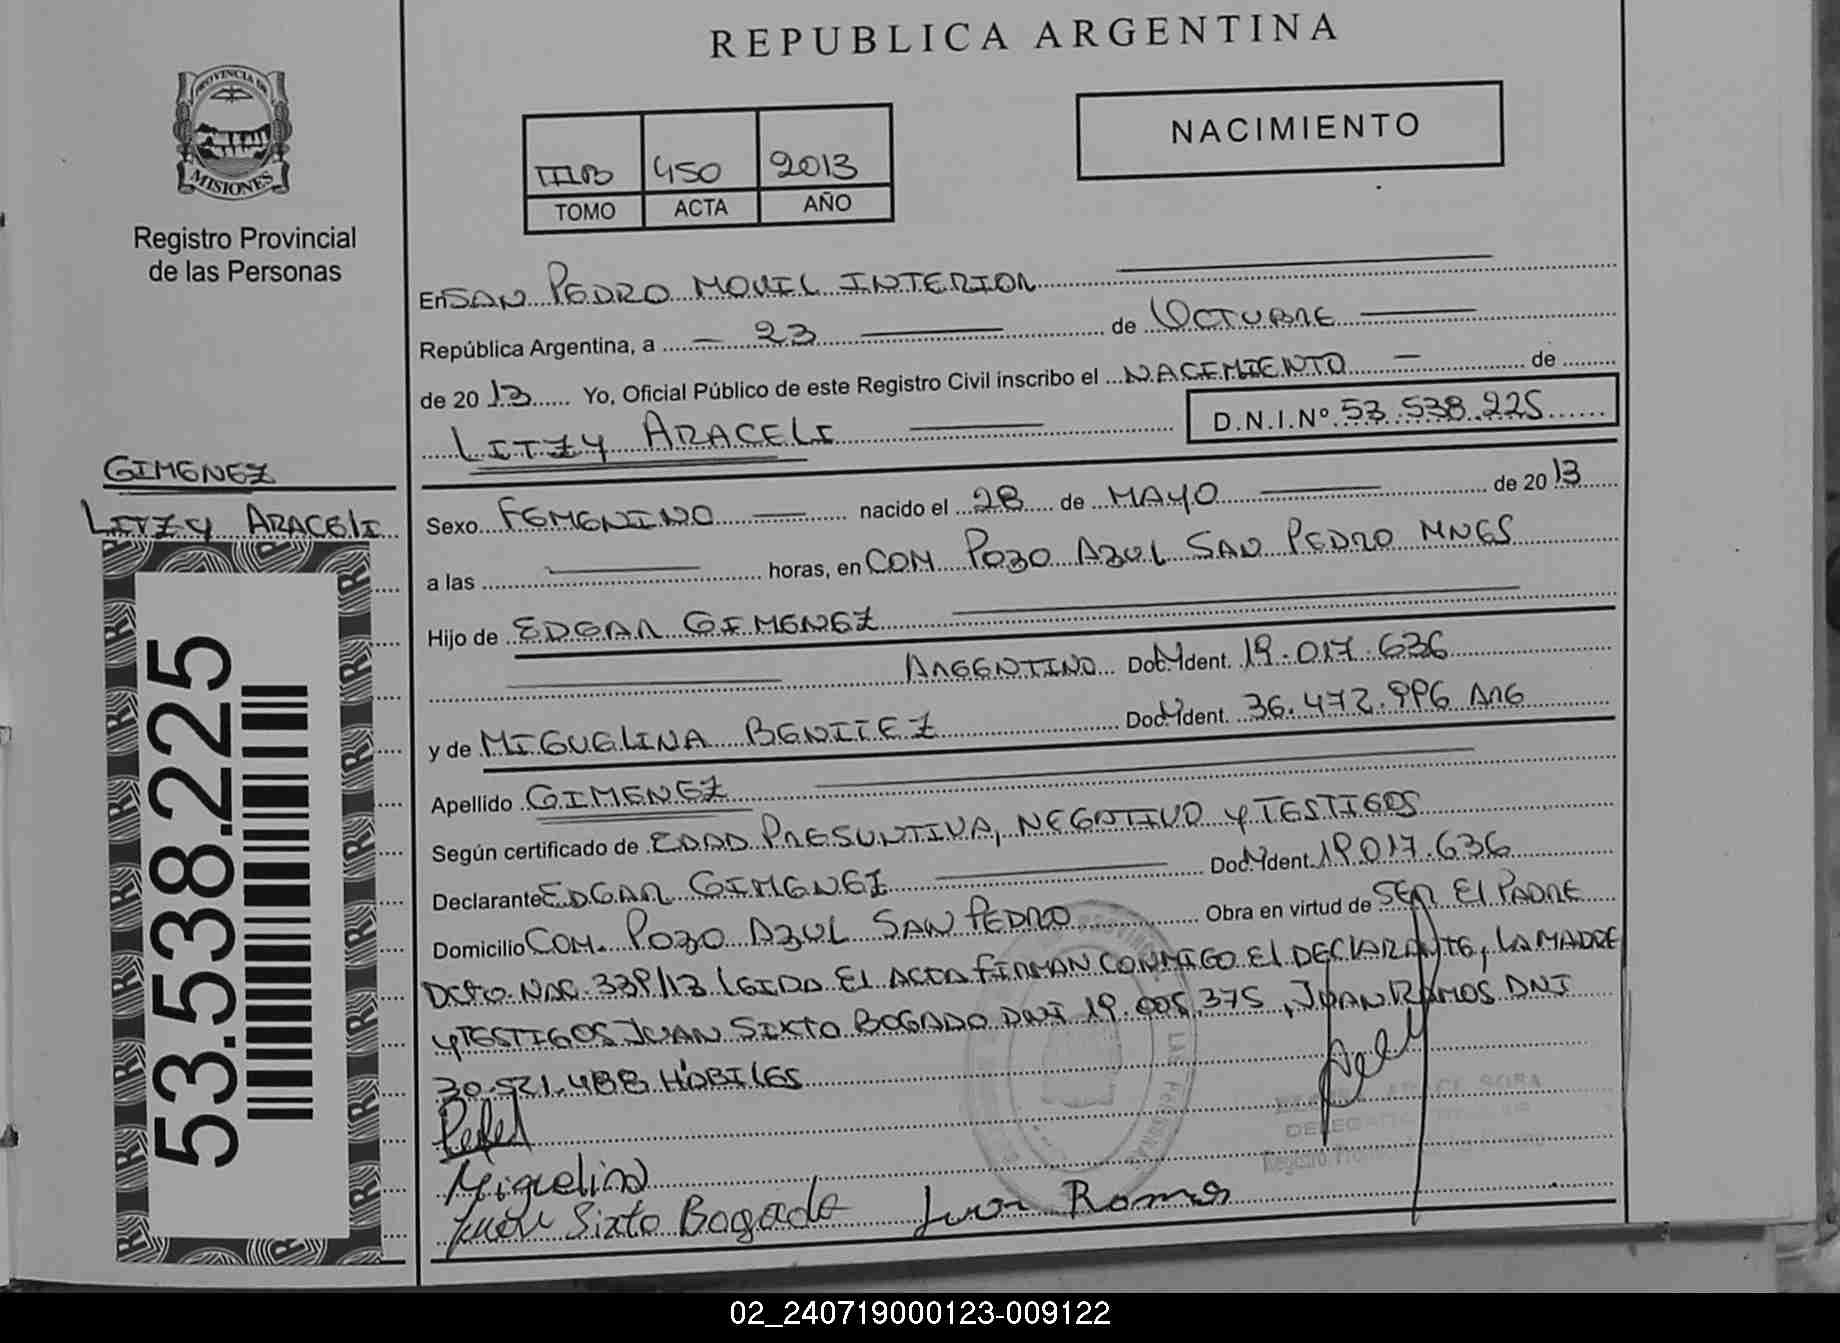 REPUBLICA ARGENTINA
PROVINCIA DE
MISIONES
Registro Provincial
de las Personas
NACIMIENTO
IIIB 450 2013
TOMO ACTA AÑO
En SAN PEDRO MOVIL INTERIOR
República Argentina, a 23 de OCTUBRE
de 2013 Yo, Oficial Público de este Registro Civil inscribo el NACIMIENTO de
LITZY ARACELI D.N.I.Nº 53.538.225
GIMENEZ
LITZY ARACELI
53.538.225
Sexo FEMENINO nacido el 28 de MAYO de 2013
a las horas, en COM POZO AZUL SAN PEDRO MNES
Hijo de EDGAR GIMENEZ
ARGENTINO Doc. Ident. 19.017.636
y de MIGUELINA BENITEZ Doc. Ident. 36.472.996 ARG
Apellido GIMENEZ
Según certificado de EDAD PRESUNTIVA, NEGATIVO Y TESTIGOS
Declarante EDGAR GIMENEZ Doc. Ident. 19.017.636
Domicilio COM. POZO AZUL SAN PEDRO Obra en virtud de SER EL PADRE
DCTO. NAC. 339/13 LEIDA EL ACTA FIRMAN CONMIGO EL DECLARANTE, LA MADRE
Y TESTIGOS JUAN SIXTO BOGADO DNI 19.005.375, JUAN RAMOS DNI
30.521.488 HÁBILES
Miguelina
Juan Sixto Bogado Juan Ramos
02_240719000123-009122